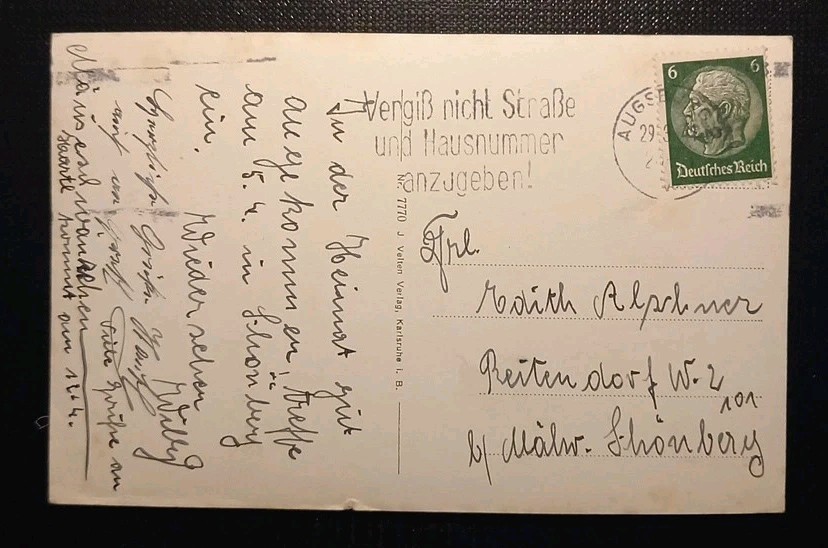 Vergiß nicht Straße
und Hausnummer
anzugeben!
AUGSB
29
6 6
Deutsches Reich
Frl.
Edith Alschner
Reitendorf W. 2
101
b/ Mähr. Schönberg
Nr. 7770 J. Velten Verlag, Karlsruhe i. B.
In der Heimat gut
angekommen, treffe
am 5.4. in Schönberg
ein.
Wiedersehen
Willy
Herzliche Grüße
auf
Viele Grüße an
kommt am 14.4.